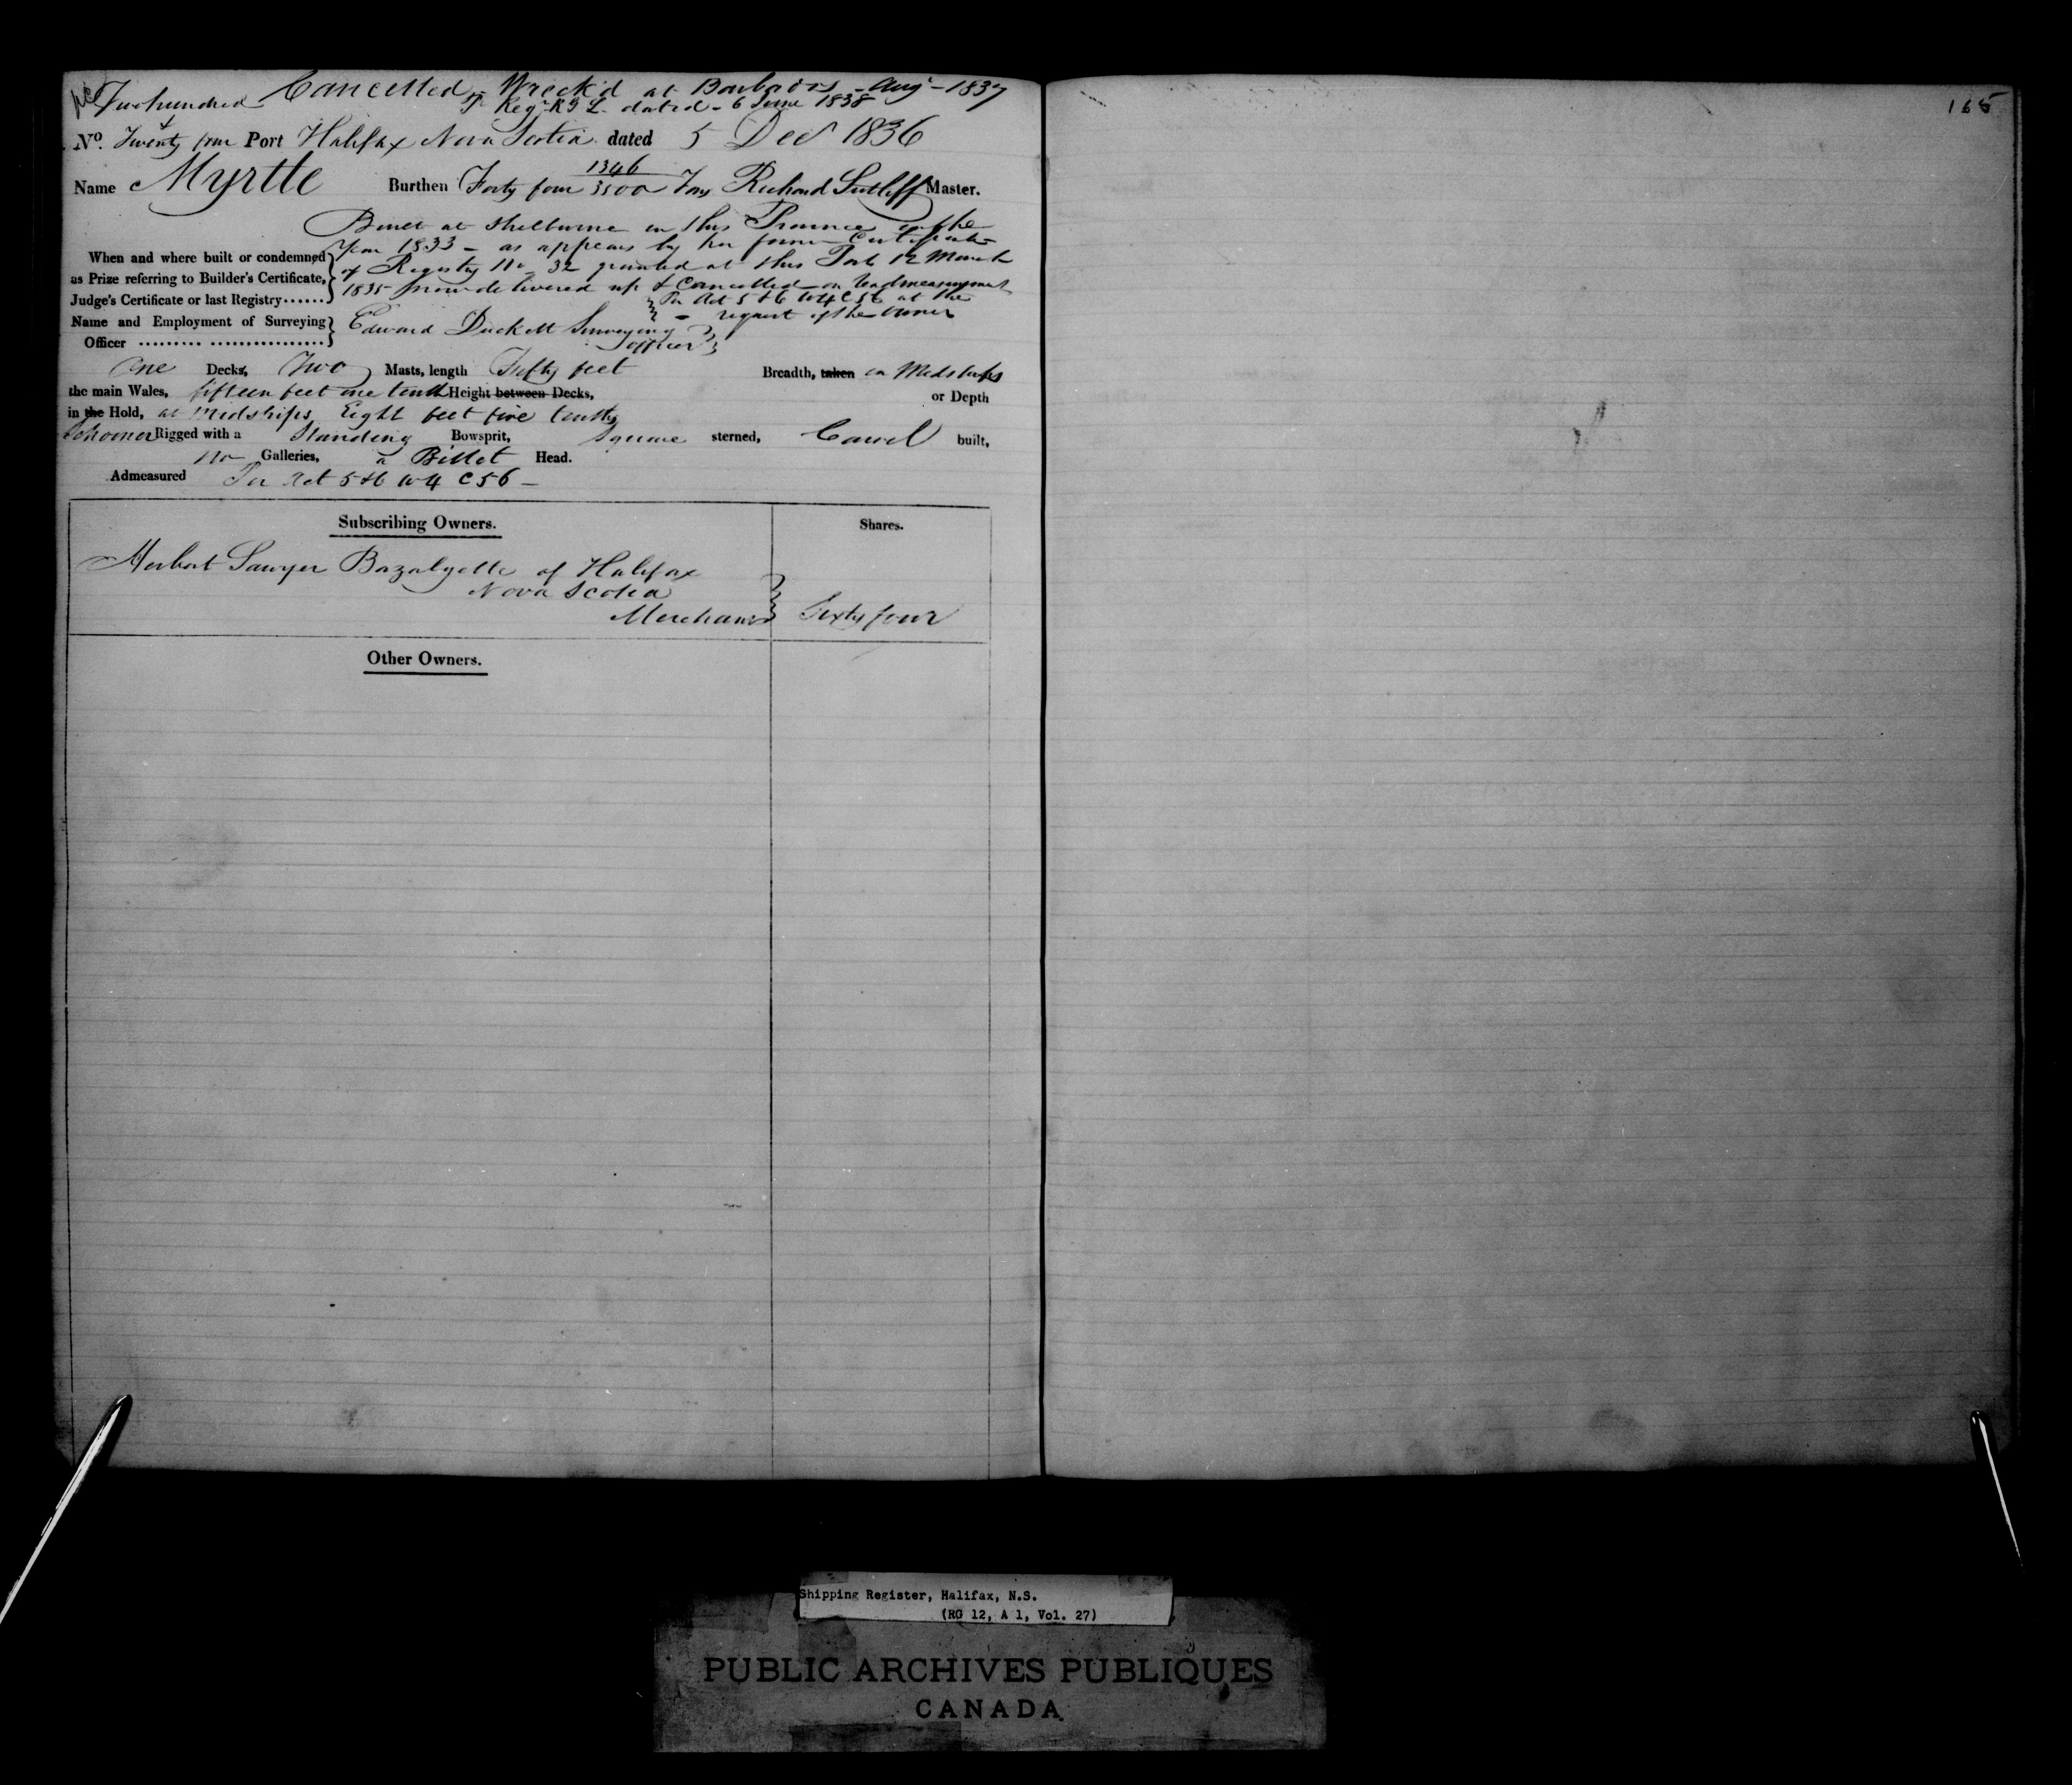 Two hundred Cancelled - Wreck'd at Barbados - Aug - 1837
& Regr. R G L. dated - 6 June 1838
No. Twenty four Port Halifax Nova Scotia dated 5 Decr 1836
Name Myrtle Burthen Forty four 1346/3500 Tons Richard Sutliff Master.
Built at Shelburne in this Province in the
When and where built or condemned as Prize referring to Builder's Certificate, Judge's Certificate or last Registry......
Year 1833 - as appears by her former Certificate
of Registry No 32 granted at this Port 12 March
1835 now delivered up & Cancelled - on Readmeasurement
Per Act 5 & 6 W 4 C 56 at the
- request of the Owner
Name and Employment of Surveying Officer
Edward Duckett Surveying
Officer
One Decks, Two Masts, length Fifty feet Breadth, taken in Midships
the main Wales, fifteen feet one tenth Height between Decks, or Depth
in the Hold, at Midships Eight feet five tenths
Schooner Rigged with a Standing Bowsprit, Square sterned, Carvel built,
No Galleries, a Billet Head.
Admeasured Per Act 5 & 6 W 4 C 56 -
Subscribing Owners. Shares.
Herbert Sawyer Bazalgette of Halifax
Nova Scotia
Merchant Sixty four
Other Owners.
165
Shipping Register, Halifax, N.S.
(RG 12, A 1, Vol. 27)
PUBLIC ARCHIVES PUBLIQUES
CANADA